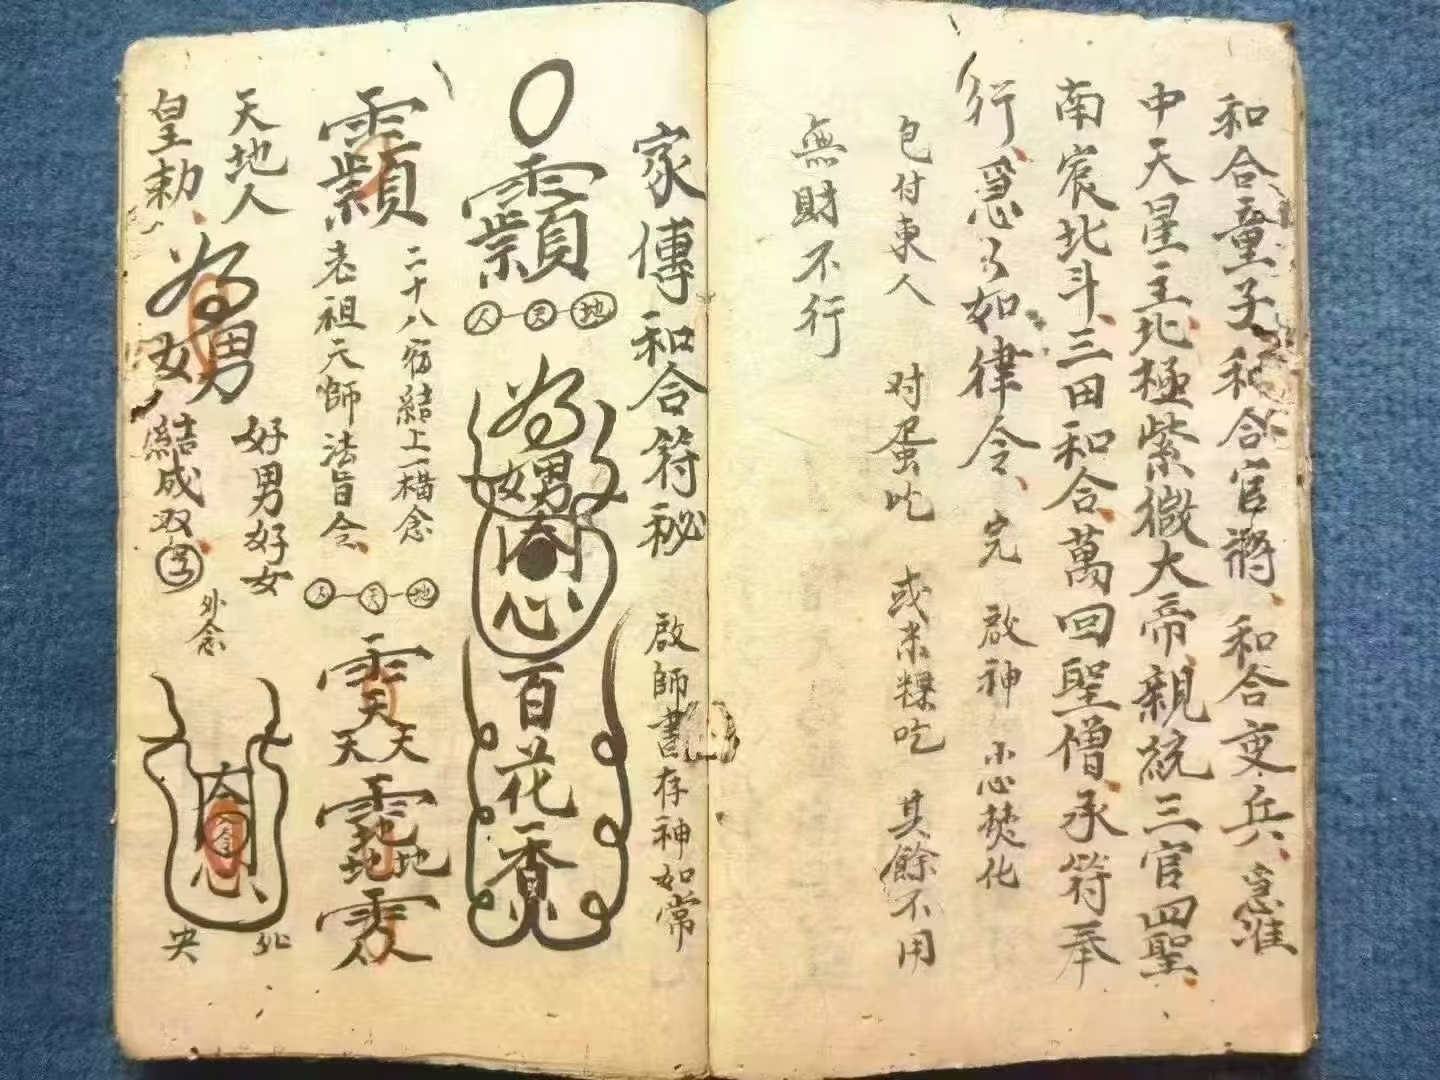 和合童子和合官將、和合变兵、急准
中天星主、北極紫微大帝、親統三官四聖、
南宸北斗、三田和合、萬回聖僧、承符奉
行、爲急急如律令、完 啟神 焚化
包付東人 对蛋吃 或米粿吃 其餘不用
無財不行
家傳和合符秘 啟師書存神如常
人 天 地
为
女男
心
百花香
二十八宿結上一横念
老祖天師法旨令、
人 天 地
天天
地地
人
天地人
皇勅、
为
女男
好男好女
結成双
外念
心
央